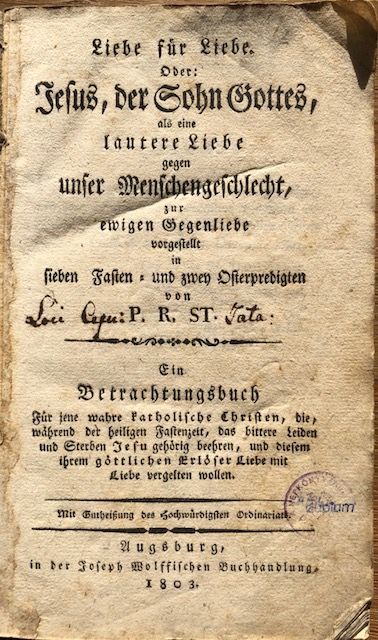 Liebe für Liebe.
Oder:
Jesus, der Sohn Gottes,
als eine
lautere Liebe
gegen
unser Menschengeschlecht,
zur
ewigen Gegenliebe
vorgestellt
in
sieben Fasten- und zwey Osterpredigten
von
Loci Capu: P. R. ST. Tata:
Ein
Betrachtungsbuch
Für jene wahre katholische Christen, die,
während der heiligen Fastenzeit, das bittere Leiden
und Sterben Jesu gehörig beehren, und diesem
ihrem göttlichen Erlöser Liebe mit
Liebe vergelten wollen.
Mit Gutheißung des Hochwürdigsten Ordinariats.
Augsburg,
in der Joseph Wolffischen Buchhandlung,
1803.